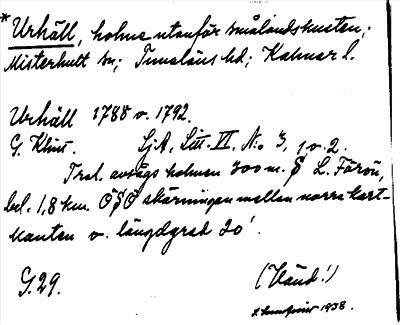 *Urhäll, holme utanför smålandskusten;
Misterhult sn; Tunaläns hd; Kalmar l.
Urhäll 1788 o. 1792.
G. Klint. SjA, Litt. VI, No 3, 1 o. 2.
Trol. avsågs holmen 300 m. S L. Färön,
bel. 1,8 km. OSO skärningen mellan norra kart-
kanten o. längdgrad 20'.
G.29. (Vänd!)
1938.